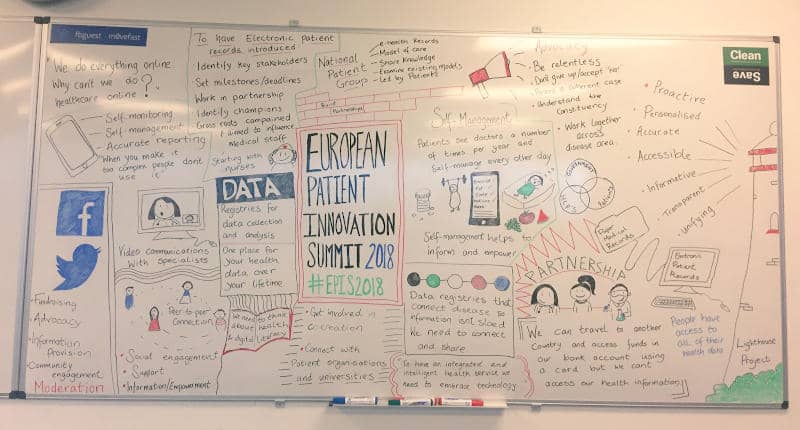 We do everything online
Why can't we do
healthcare online?
Self monitoring
Self-management
Accurate reporting
When you make it
too complex people don't
use it
To have Electronic patient
records introduced
Identify key stakeholders
Set milestones/deadlines
Work in partnership
Identify champions
Grass roots campained
aimed to influence
Medical staff
Starting with
nurses
National
Patient
Group
e-health Records
Model of care
Share knowledge
Examine existing models
Led by Patients
Build
Partnerships
EUROPEAN
PATIENT
INNOVATION
SUMMIT 2018
#EPIS2018
DATA
Registries for
data collection
and analysis
One place for
your health
data over
your lifetime
We need to think
about health
& digital literacy
Video communications
With specialists
Peer-to-peer
Connection
Social engagement
Support
Information/Empowerment
f
Fundraising
Advocacy
Information
provision
Community
engagement
Moderation
Get involved in
co-creation
Connect with
Patient organisations
and universities
Advocacy
Be relentless
Don't give up/accept 'No'
coherent case
Understand the
Constituency
Work together
across
disease area
Self-Management
Patients see doctors a number
of times per year and
Self-manage every other day
Self-management helps to
inform and empower
Data registries that
connect disease so
information isn't siloed
We need to connect
and share
To have an integrated and
intelligent health service we
need to embrace technology
Government
Paper
Medical
Records
PARTNERSHIP
Electronic
Patient
Records
We can travel to another
Country and access funds in
our bank account using
a card but we can't
access our health information
People have
access to
all of their
health data
Proactive
Personalised
Accurate
Accessible
Informative
Transparent
Unifying
Lighthouse
Project
Clean
Save